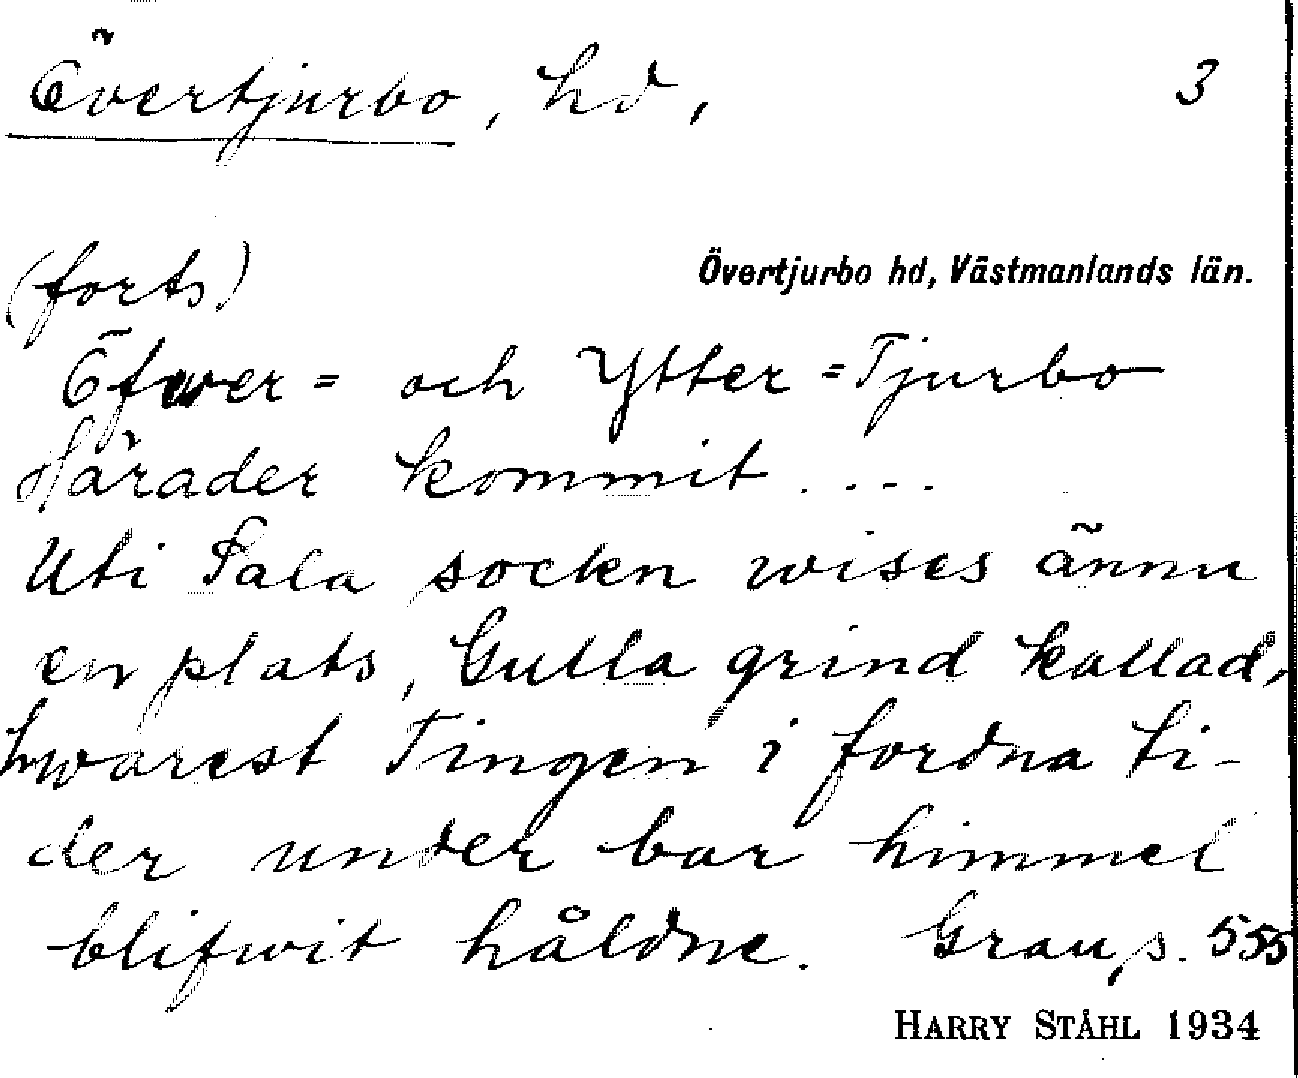 Övertjurbo, hd,
3
(forts)
Övertjurbo hd, Västmanlands län.
Öfwer= och Ytter=Tjurbo
Härader kommit....
Uti Sala sockn wises ännu
en plats, Gulla grind kallad,
hwarest Tingen i fordna ti-
der under bar himmel
blifwit håldne. Grau, s. 555
HARRY STÅHL 1934